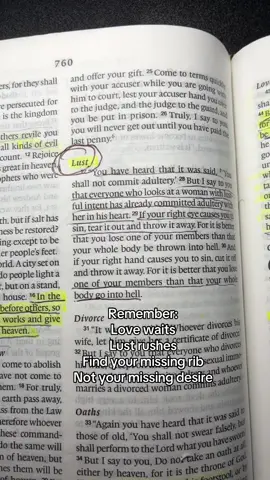 760
ers, for they shall
e persecuted for
is the kingdom
thers revile you
all kinds of evil
count. Rejoice
great in heaven
phets who were
but if salt has
ness be restored?
ing except to be
er people's feet.
world. A city set on
do people light a
, but on a stand,
house. 16 In the
before others, so
works and give
heaven.
come to abolish
have not come
For truly,
earth pass away,
pass from the Law
these command-
do the same will
m of heaven, but
hes them will be
of heaven. For
and offer your gift. 25 Come to terms quickly
with your accuser while you are going with
him to court, lest your accuser hand you
to the judge, and the judge to the guard, and
you be put in prison. 26 Truly, I say to you,
you will never get out until you have paid the
last penny.
Lust
"You have heard that it was said, 'You
shall not commit adultery.' But I say to you
that everyone who looks at a woman with lust-
ful intent has already committed adultery with
her in his heart. If your right eye causes you to
sin, tear it out and throw it away. For it is better
that you lose one of your members than that
your whole body be thrown into hell. And
if your right hand causes you to sin, cut it off
and throw it away. For it is better that you lose
one of your members than that your whole
body go into hell.
Divorce
"It was
whoever divorces his
wife, let
certificate of divorce.'
But I say to you that everyone who divorces
sexual immo-
marries a divorced woman commits adultery.
Oaths
"Again you have heard that it was said to
those of old, 'You shall not swear falsely, but
shall perform to the Lord what you have sworn.'
But I say to you, Do not take an oath at all,
either by heaven, for it is the throne of God,
Remember:
Love waits
Lust rushes
Find your missing rib
Not your missing desire